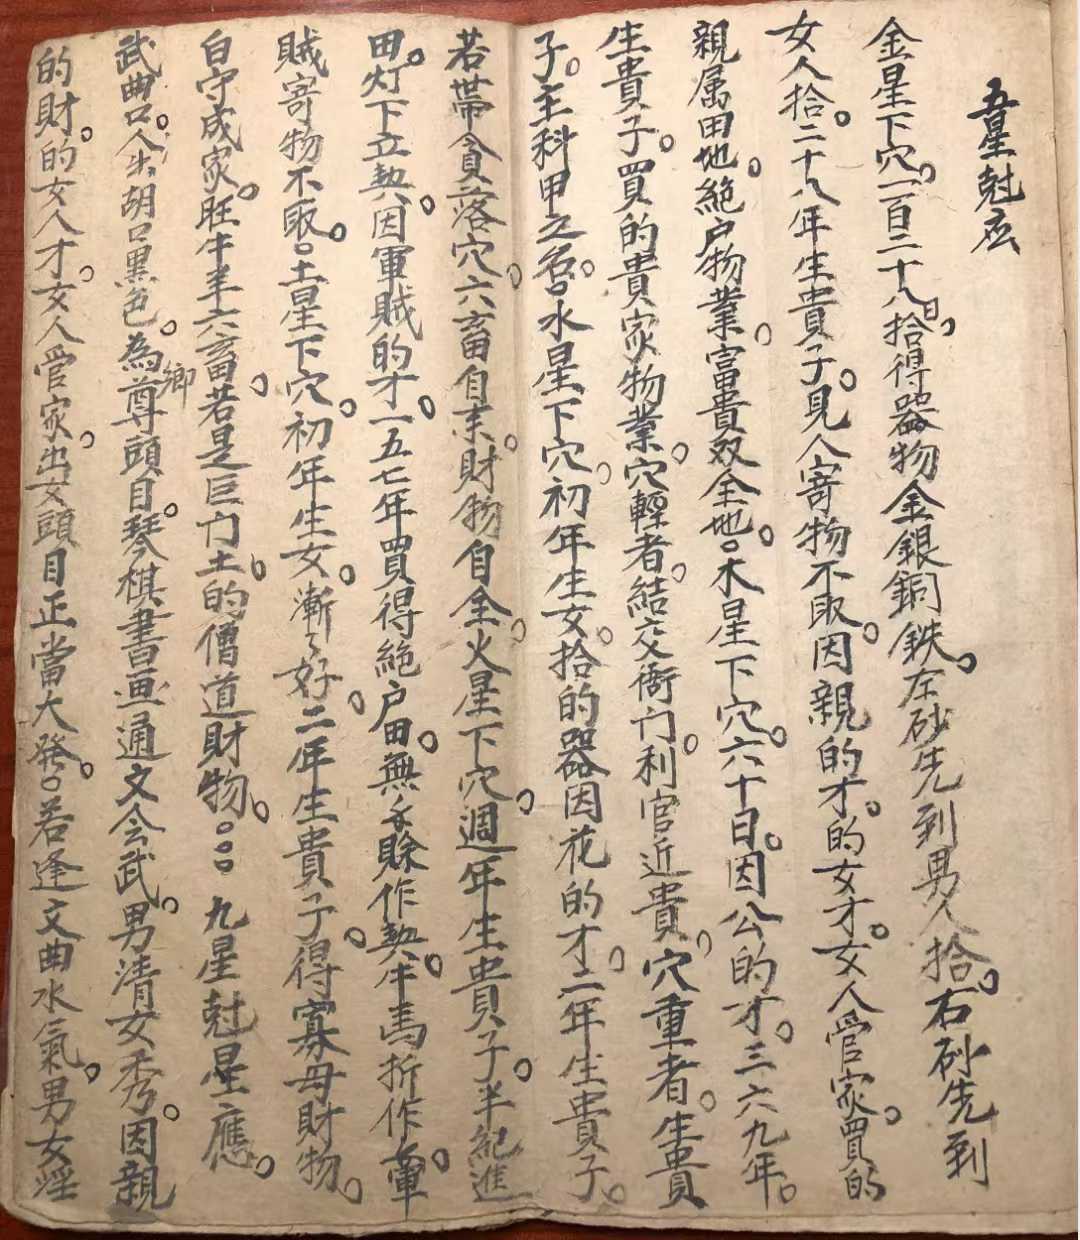 五星尅应
金星下穴。一百二十八日。拾得器物金銀銅鉄。左砂先到男人拾。右砂先到
女人拾。二十八年生貴子。見人寄物不取。因親的才。的女才。女人管家。買的
親属田地。絕户物業。富貴双全地。木星下穴。六十日。因公的才。三六九年。
生貴子。買的貴家物業。穴輕者。結交衙门。利官近貴。穴重者。生貴
子。主科甲之名。水星下穴。初年生女。拾的器因花的才。二年生貴子。
若帶貪落穴。六畜自来。財物自全。火星下穴。週年生貴子。半紀進
田。灯下立契。因軍賊的才。一五七年買得絕户田。無錢賒作契。牛馬折作。軍
賊寄物不取。土星下穴。初年生女。漸々好。二年生貴子。得寡母財物。
白守成家。旺牛羊六畜。若是巨门土。的僧道財物。 九星尅星應。
武曲。人出胡口黑色。為尊頭目。琴棋書画通文会武。男清女秀。因親
鄉
的財。的女人才。女人管家。出女頭目正當大發。若逢文曲水氣。男女淫